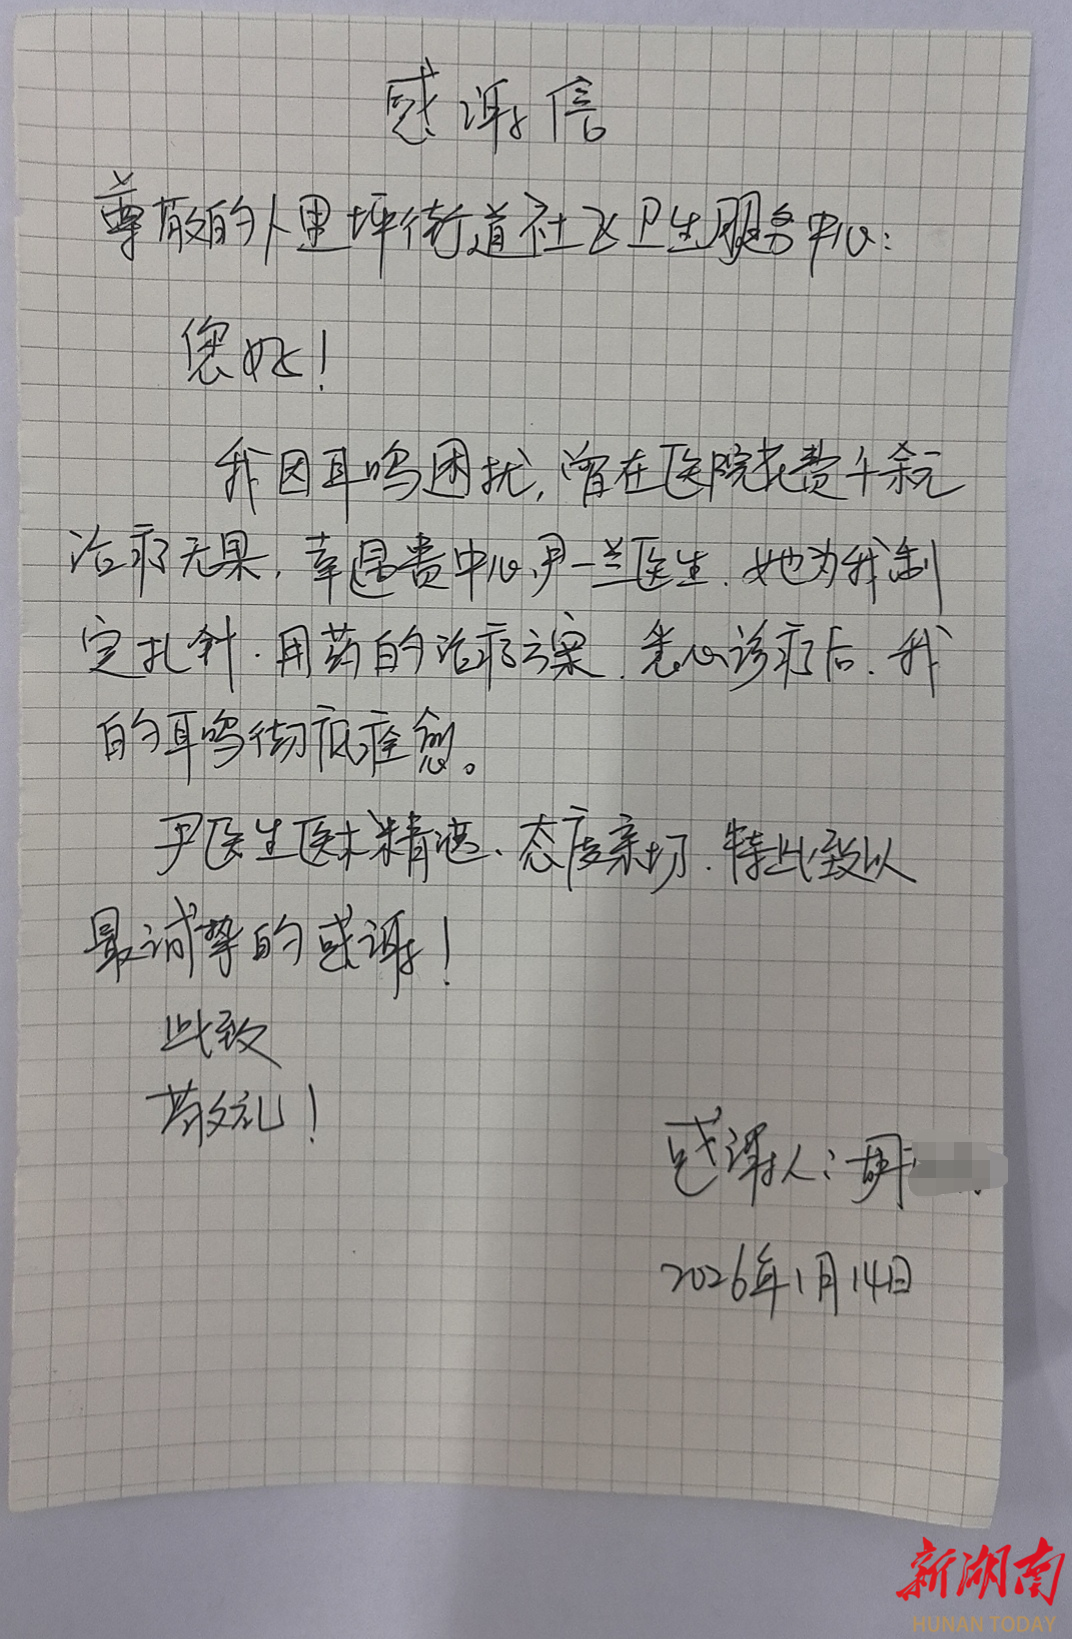 感谢信
尊敬的外里坪街道社区卫生服务中心:
您好!
我因耳鸣困扰,曾在医院花费千余元
治疗无果,幸遇贵中心尹一兰医生.她为我制
定扎针.用药的治疗方案.悉心诊疗后.我
的耳鸣彻底痊愈。
尹医生医术精湛、态度亲切.特此致以
最诚挚的感谢!
此致
敬礼!
感谢人:胡
2026年1月14日
新湖南
HUNAN TODAY